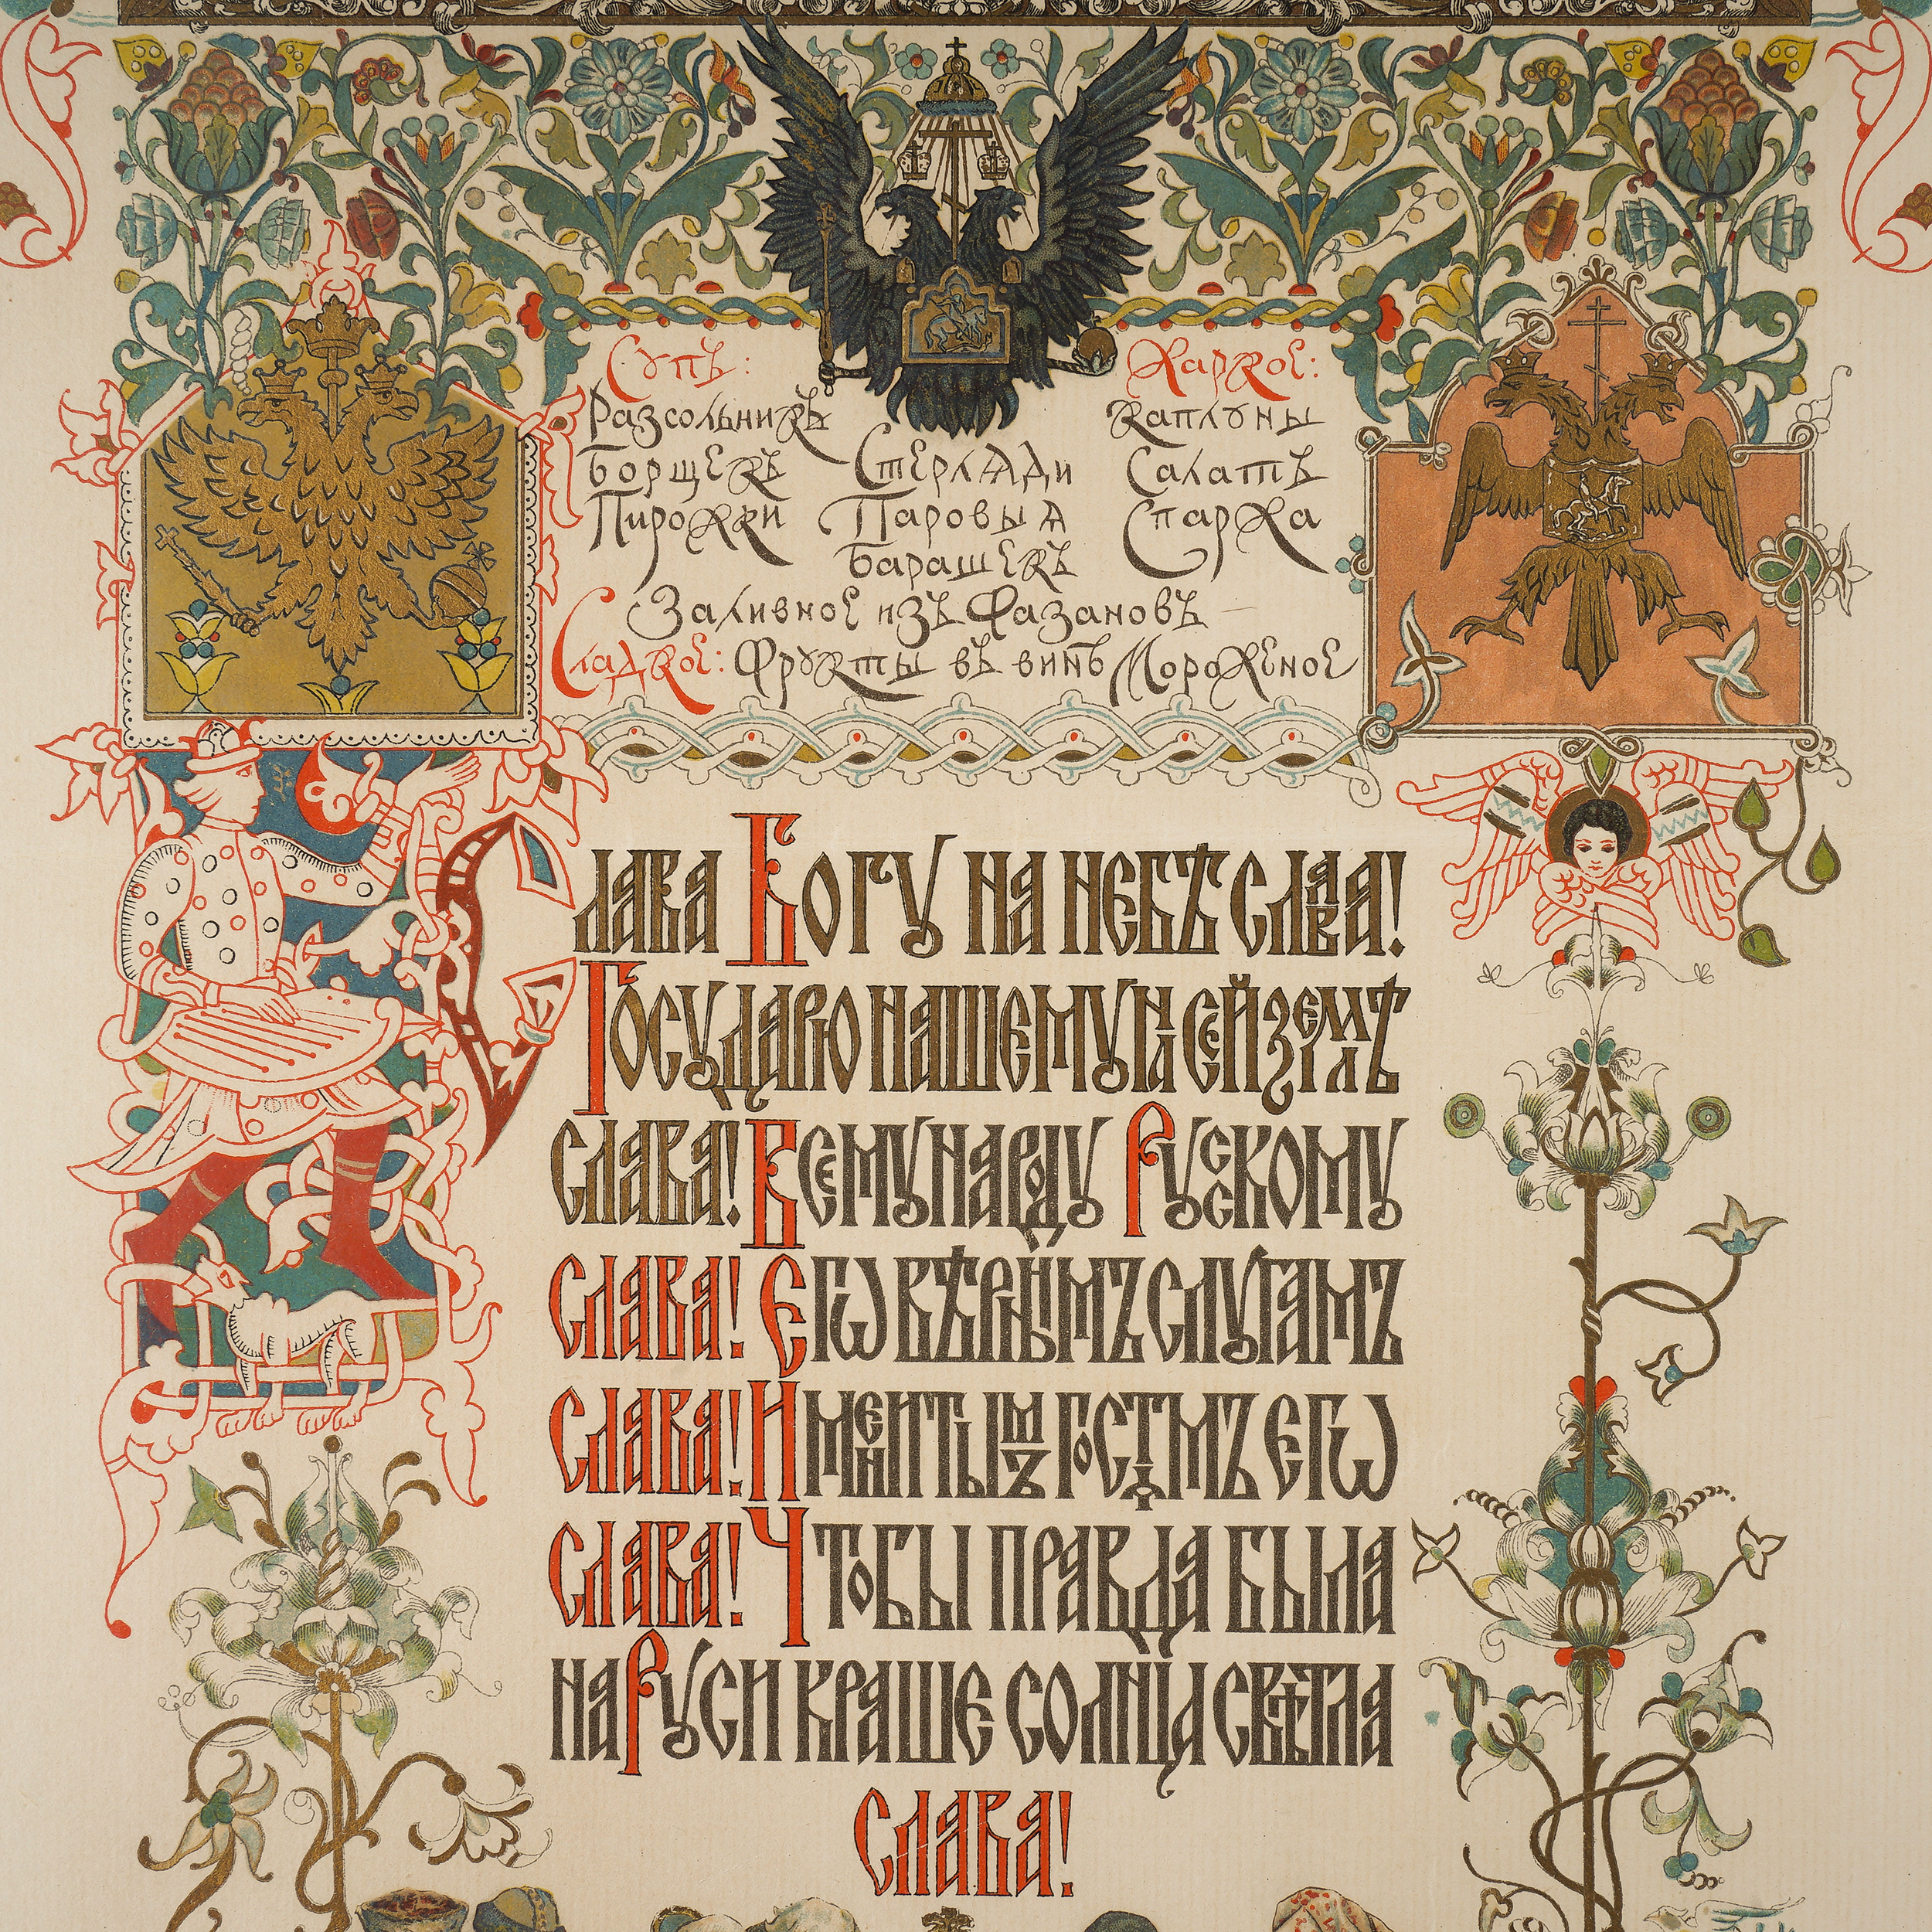 Супъ: Жаркое:
Разсольникъ Каплуны
Борщекъ Стерляди Салатъ
Пирожки Паровыя Спаржа
Барашекъ
Заливное изъ Фазановъ
Сладкое: Фрукты въ винѣ Мороженое
Слава Богу на небѣ слава!
Государю нашему на сей землѣ
слава! Всему народу Русскому
слава! Его вѣрнымъ слугамъ
слава! Именитымъ гостямъ его
слава! Чтобы правда была
на Руси краше солнца свѣтла
слава!